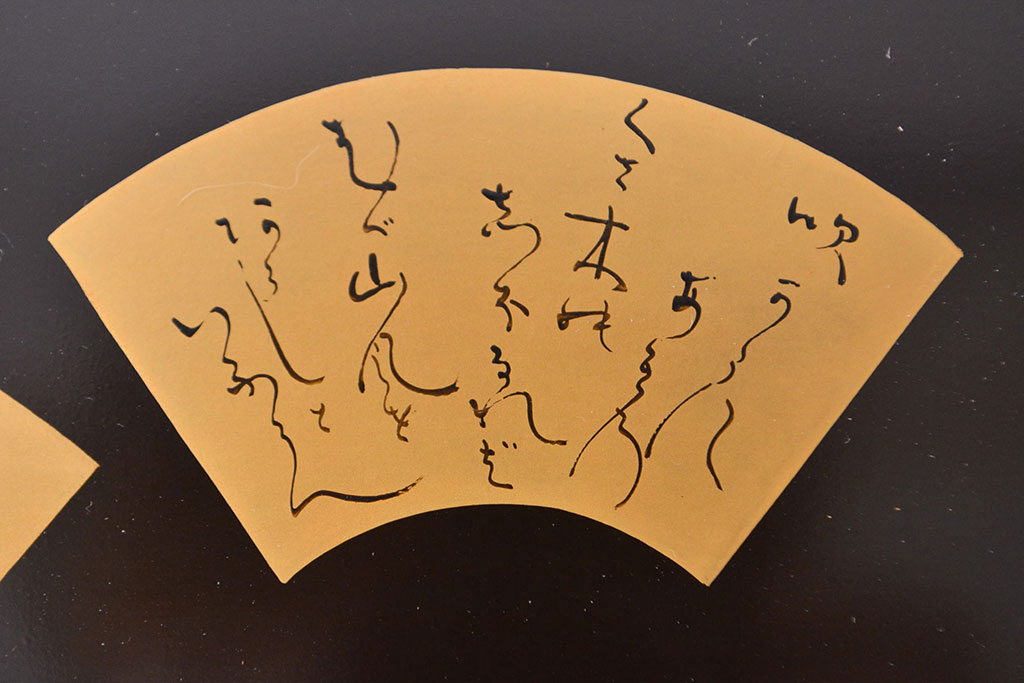 吹からに
あきの
くさ木の
しほるれば
むべ山風を
あらしと
いふらん